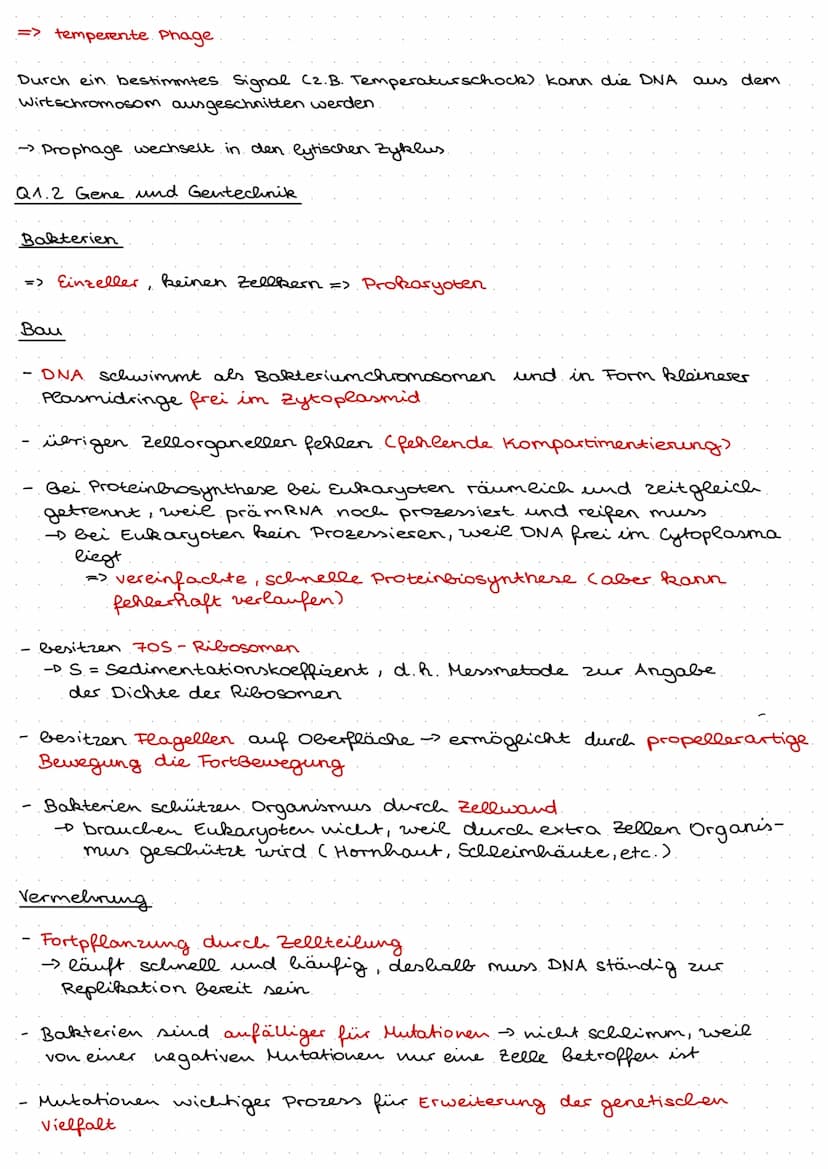 => temperente Phage
Durch ein bestimmtes Signal (z.B. Temperaturschock) kann die DNA aus dem
Wirtschromosom ausgeschnitten werden
-> Prophage wechselt in den lytischen Zyklus
Q1.2 Gene und Gentechnik
Bakterien
=> Einzeller, keinen Zellkern => Prokaryoten
Bau
- DNA schwimmt als Bakteriumchromosomen und in Form kleinerer
Plasmidringe frei im Zytoplasmid
- übrigen Zellorganellen fehlen (fehlende Kompartimentierung)
- Bei Proteinbiosynthese bei Eukaryoten räumlich und zeitgleich
getrennt, weil prämRNA noch prozessiert und reifen muss
-> bei Eukaryoten kein Prozessieren, weil DNA frei im Cytoplasma
liegt
=> vereinfachte, schnelle Proteinbiosynthese (aber kann
fehlerhaft verlaufen)
- besitzen 70S - Ribosomen
-> S = Sedimentationskoeffizent, d.h. Messmetode zur Angabe
der Dichte der Ribosomen
- besitzen Flagellen auf Oberfläche -> ermöglicht durch propellerartige
Bewegung die Fortbewegung
- Bakterien schützen Organismus durch Zellwand
-> brauchen Eukaryoten nicht, weil durch extra Zellen Organis-
mus geschützt wird (Hornhaut, Schleimhäute, etc.)
Vermehrung
- Fortpflanzung durch Zellteilung
-> läuft schnell und häufig, deshalb muss DNA ständig zur
Replikation bereit sein
- Bakterien sind anfälliger für Mutationen -> nicht schlimm, weil
von einer negativen Mutationen nur eine Zelle betroffen ist
- Mutationen wichtiger Prozess für Erweiterung der genetischen
Vielfalt